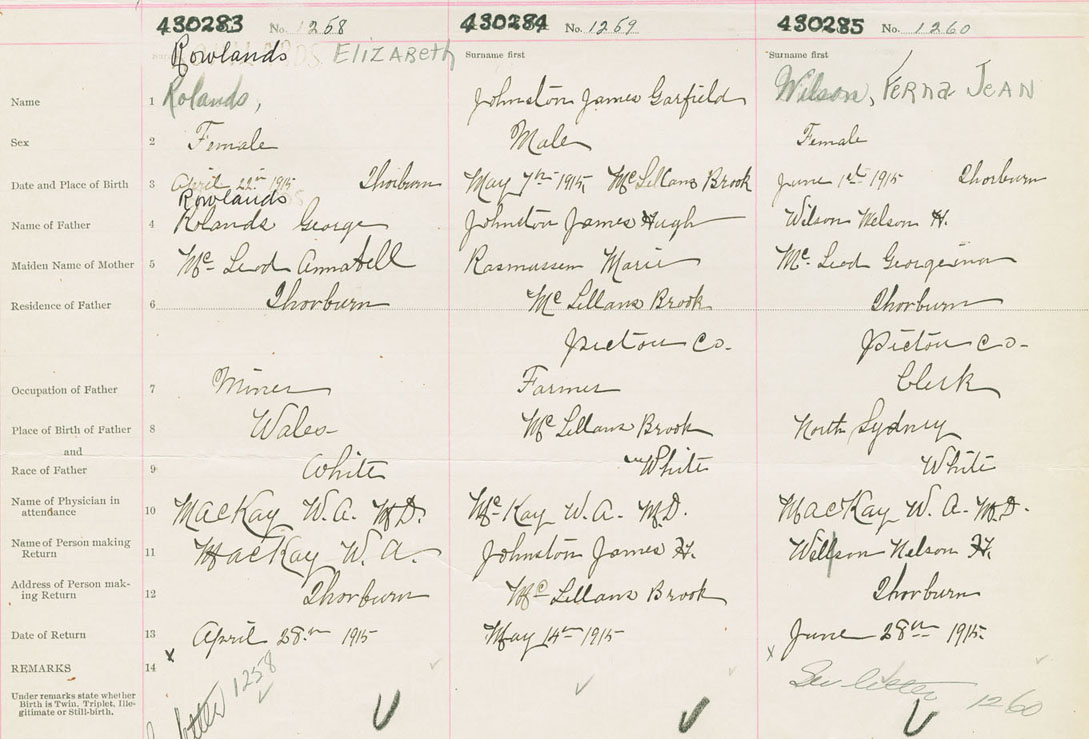 430283 No. 1258 430284 No. 1259 430285 No. 1260
Rowlands ELIZABETH Surname first Surname first
Name 1 Rolands, Johnston James Garfield Wilson, Verna JEAN
Sex 2 Female Male Female
Date and Place of Birth 3 April 22nd 1915 Thorburn May 7th 1915 McLellans Brook June 1st 1915 Thorburn
Rowlands
Name of Father 4 Rolands George Johnston James Hugh Wilson Nelson H.
Maiden Name of Mother 5 McLeod Annabell Rasmussen Marie McLeod Georgeina
Residence of Father 6 Thorburn McLellans Brook Thorburn
Pictou Co. Pictou Co.
Occupation of Father 7 Miner Farmer Clerk
Place of Birth of Father 8 Wales McLellans Brook North Sydney
and
Race of Father 9 White White White
Name of Physician in
attendance 10 MacKay W. A. M.D. McKay W. A. M.D. MacKay W. A. M.D.
Name of Person making
Return 11 MacKay W. A. Johnston James H. Willson Nelson H.
Address of Person mak-
ing Return 12 Thorburn McLellans Brook Thorburn
Date of Return 13 April 28th 1915 May 14th 1915 June 28th 1915
x x
REMARKS 14
Under remarks state whether
Birth is Twin, Triplet, Ille-
gitimate or Still-birth.
letter 1258
See letter 1260